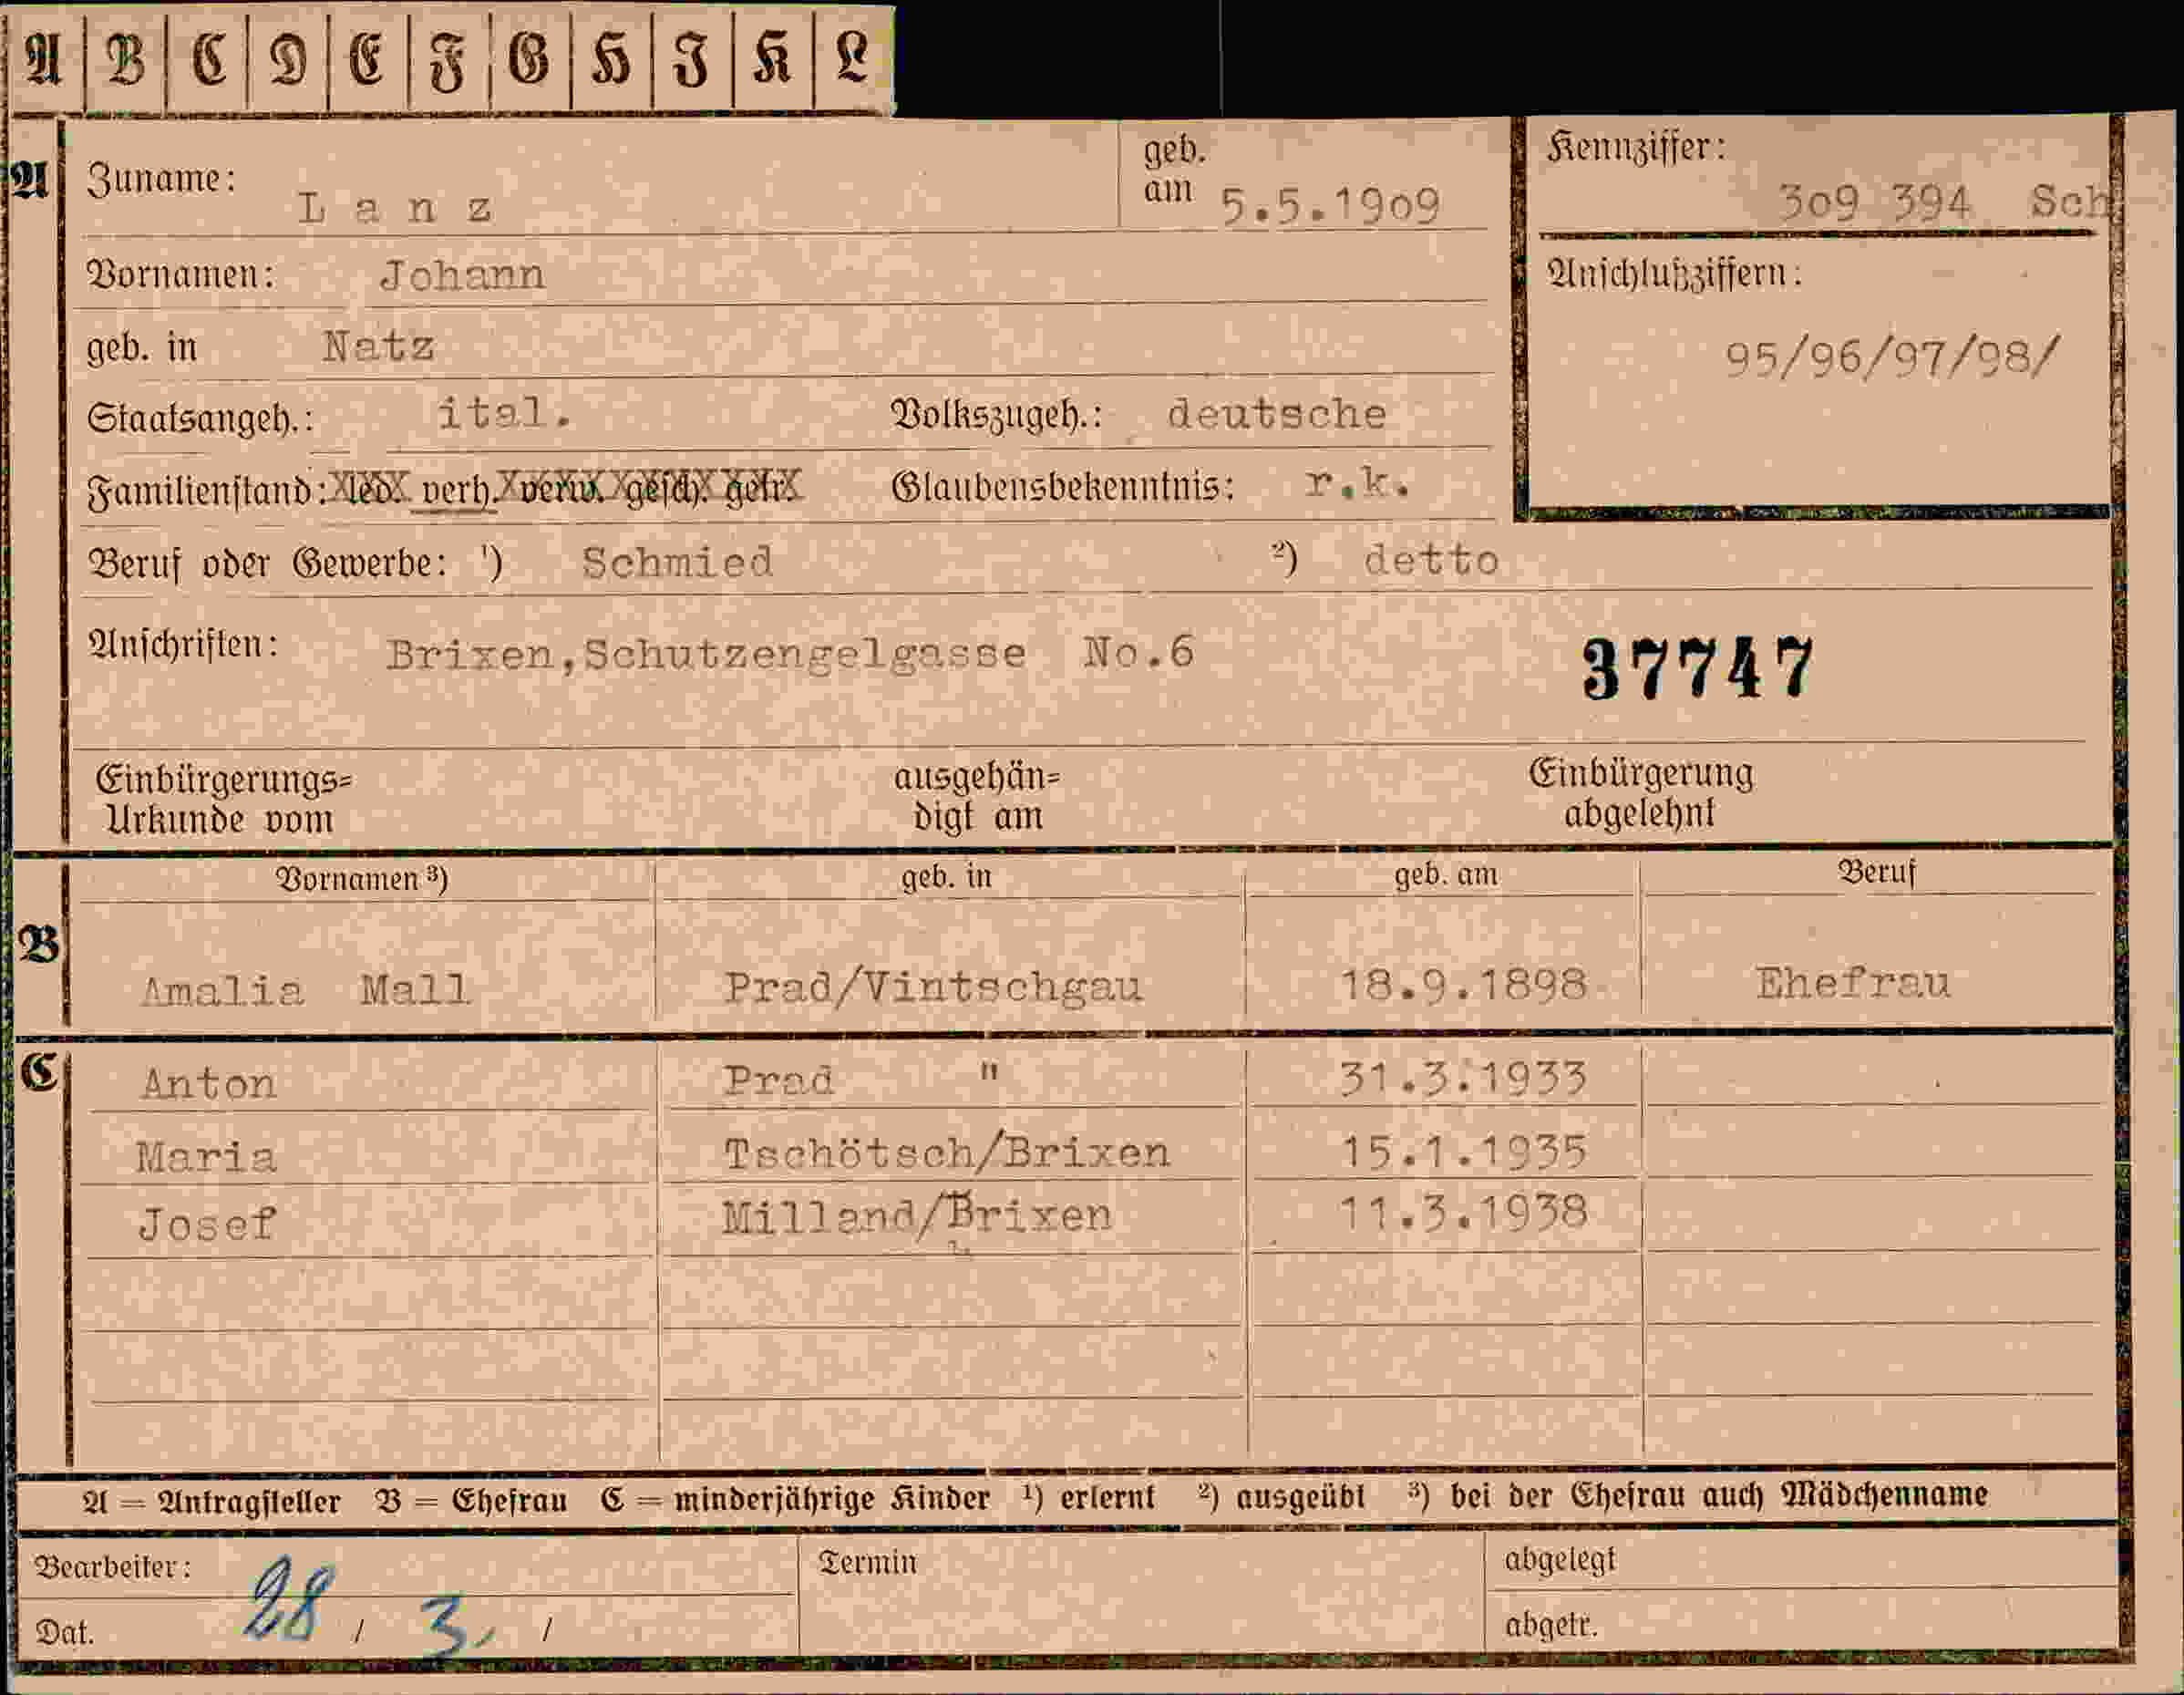 A B C D E F G H I K L
A Zuname: Lanz geb. am 5.5.1909 Kennziffer: 309 394 Sch
Vornamen: Johann Anschlußziffern:
geb. in Natz 95/96/97/98/
Staatsangeh.: ital. Volkszugeh.: deutsche
Familienstand: led. verh. verw. gesch. getr. Glaubensbekenntnis: r.k.
Beruf oder Gewerbe: ¹) Schmied ²) detto
Anschriften: Brixen,Schutzengelgasse No.6 37747
Einbürgerungs= ausgehän= Einbürgerung
Urkunde vom digt am abgelehnt
Vornamen ³) geb. in geb. am Beruf
B Amalia Mall Prad/Vintschgau 18.9.1898 Ehefrau
C Anton Prad " 31.3.1933
Maria Tschötsch/Brixen 15.1.1935
Josef Milland/Brixen 11.3.1938
A = Antragsteller B = Ehefrau C = minderjährige Kinder ¹) erlernt ²) ausgeübt ³) bei der Ehefrau auch Mädchenname
Bearbeiter: Termin abgelegt
Dat. 28 / 3. / abgetr.